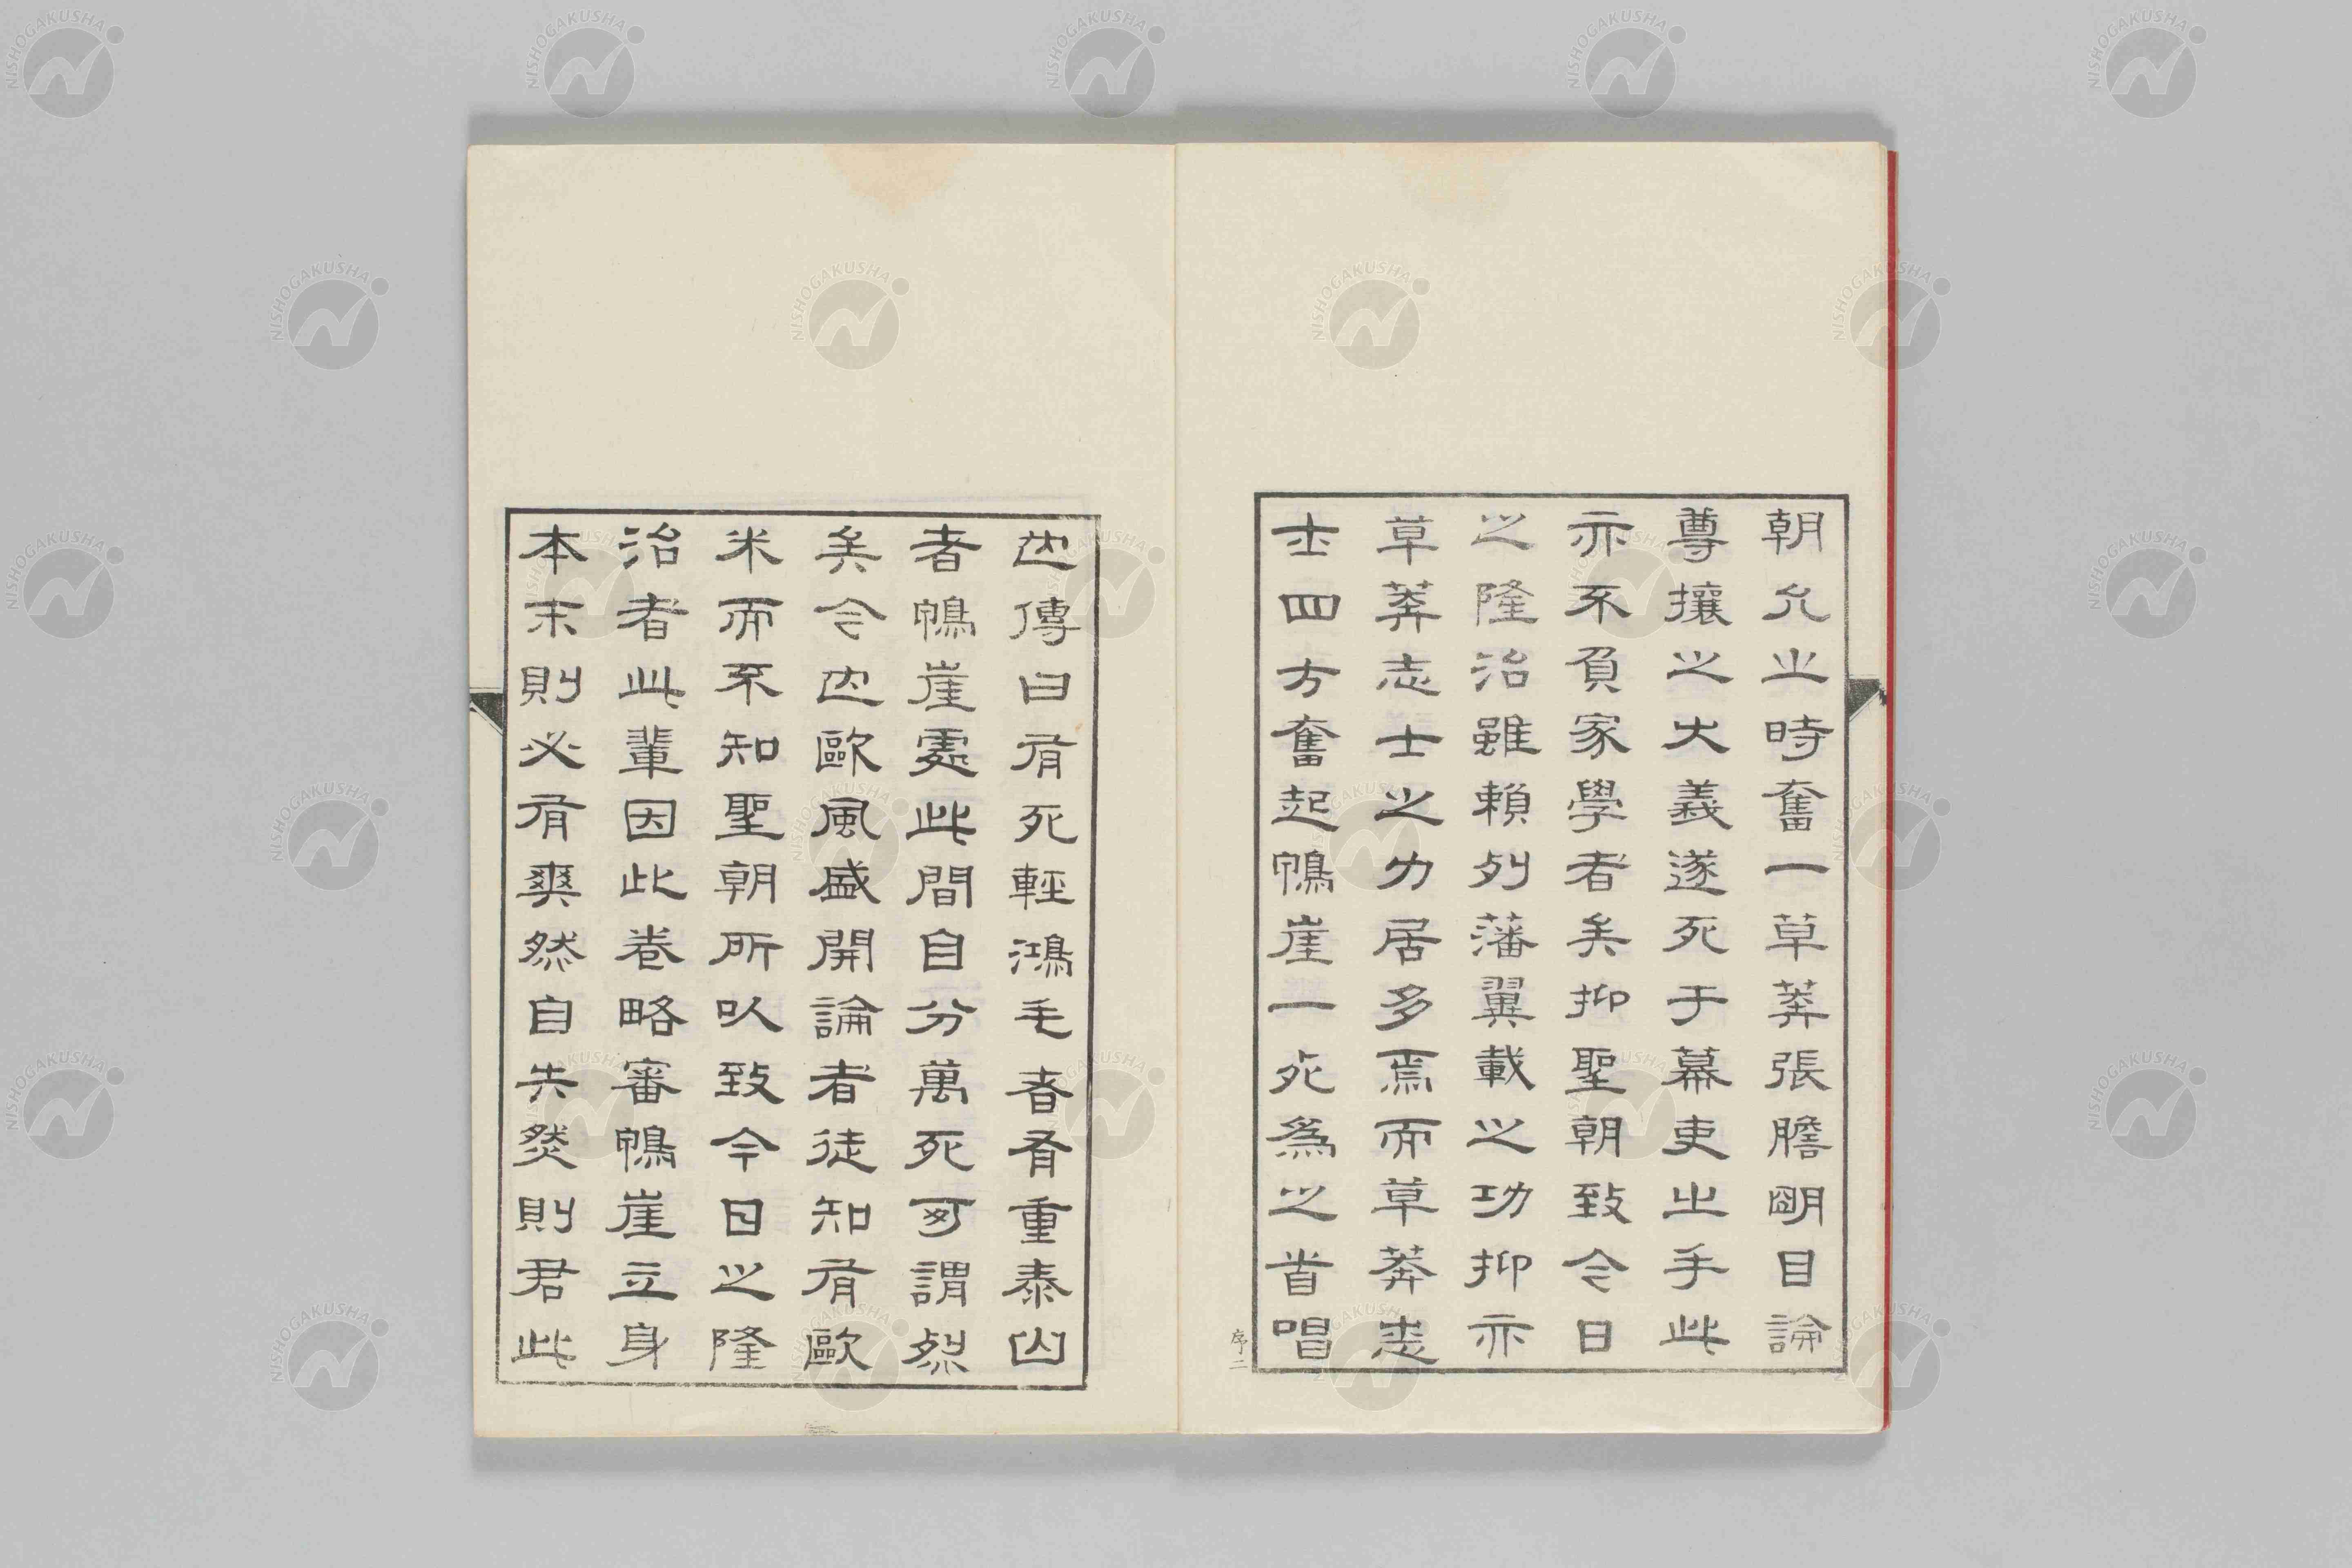 朝允之時奮一草莽張膽明目論
尊攘之大義遂死于幕吏之手此
亦不負家學者矣抑聖朝致今日
之隆治雖賴列藩翼載之功抑亦
草莽志士之力居多焉而草莽志
士四方奮起鴨崖一死爲之首唱
序二
也傳曰有死輕鴻毛者有重泰山
者鴨崖處此間自分萬死可謂烈
矣今也歐風盛開論者徒知有歐
米而不知聖朝所以致今日之隆
治者此輩因此卷略審鴨崖立身
本末則必有爽然自失然則君此
NISHOGAKUSHA